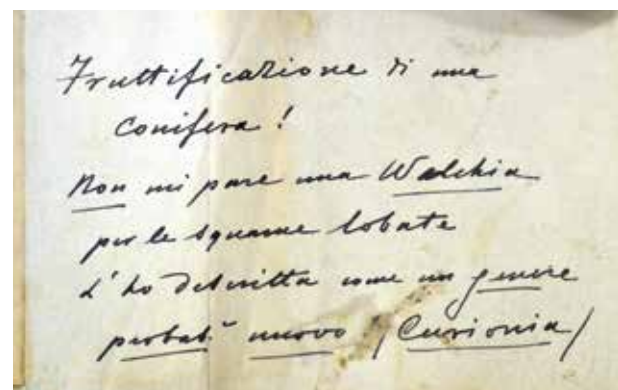 Fruttificazione di una
conifera !
Non mi pare una Walchia
per le squame lobate
L'ho descritta come un genere
probat.e nuovo (Curionia)